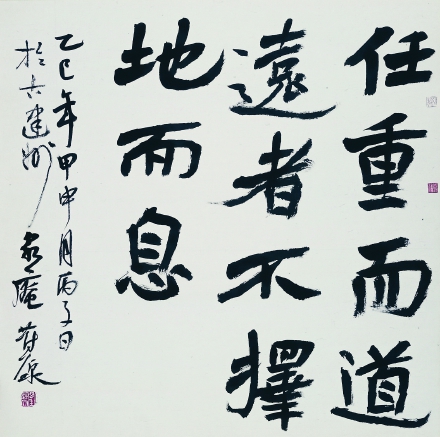 任重而道
遠者不擇
地而息
乙巳年甲申月丙子日
於古建州